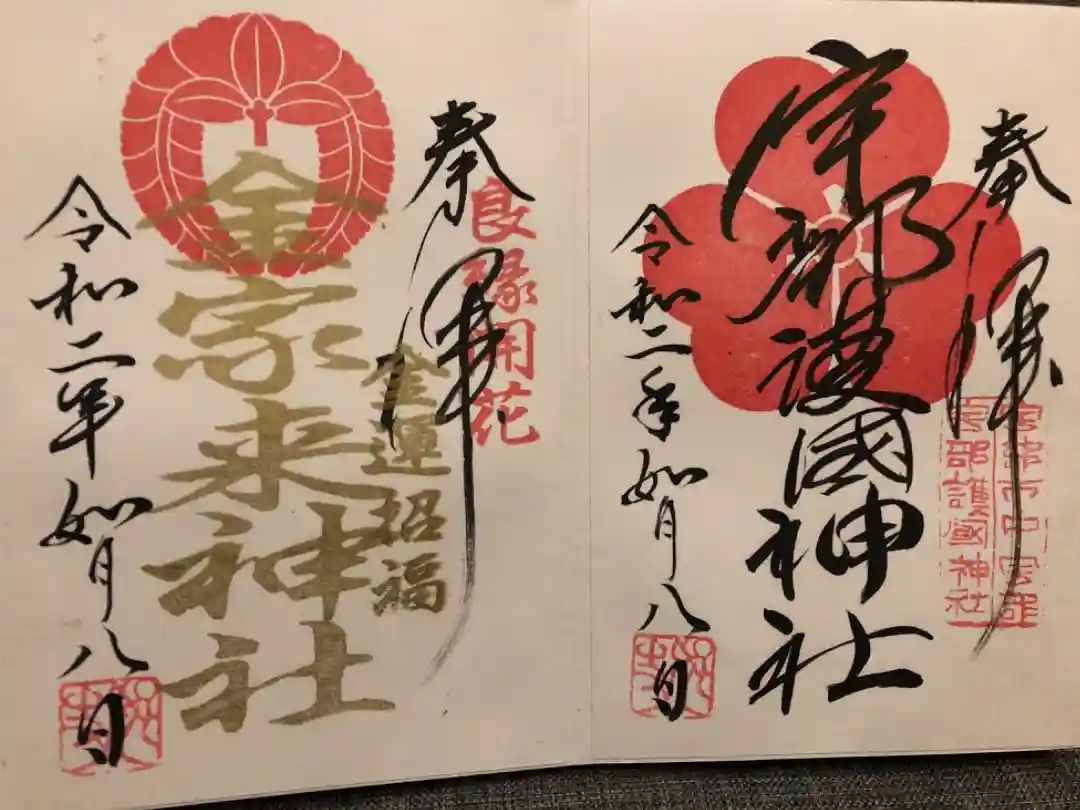 奉拝
宇部市中宇部
宇部護國神社
宇部護國神社
令和二年如月八日
良縁開花
奉拝
金運招福
金家来神社
令和二年如月八日